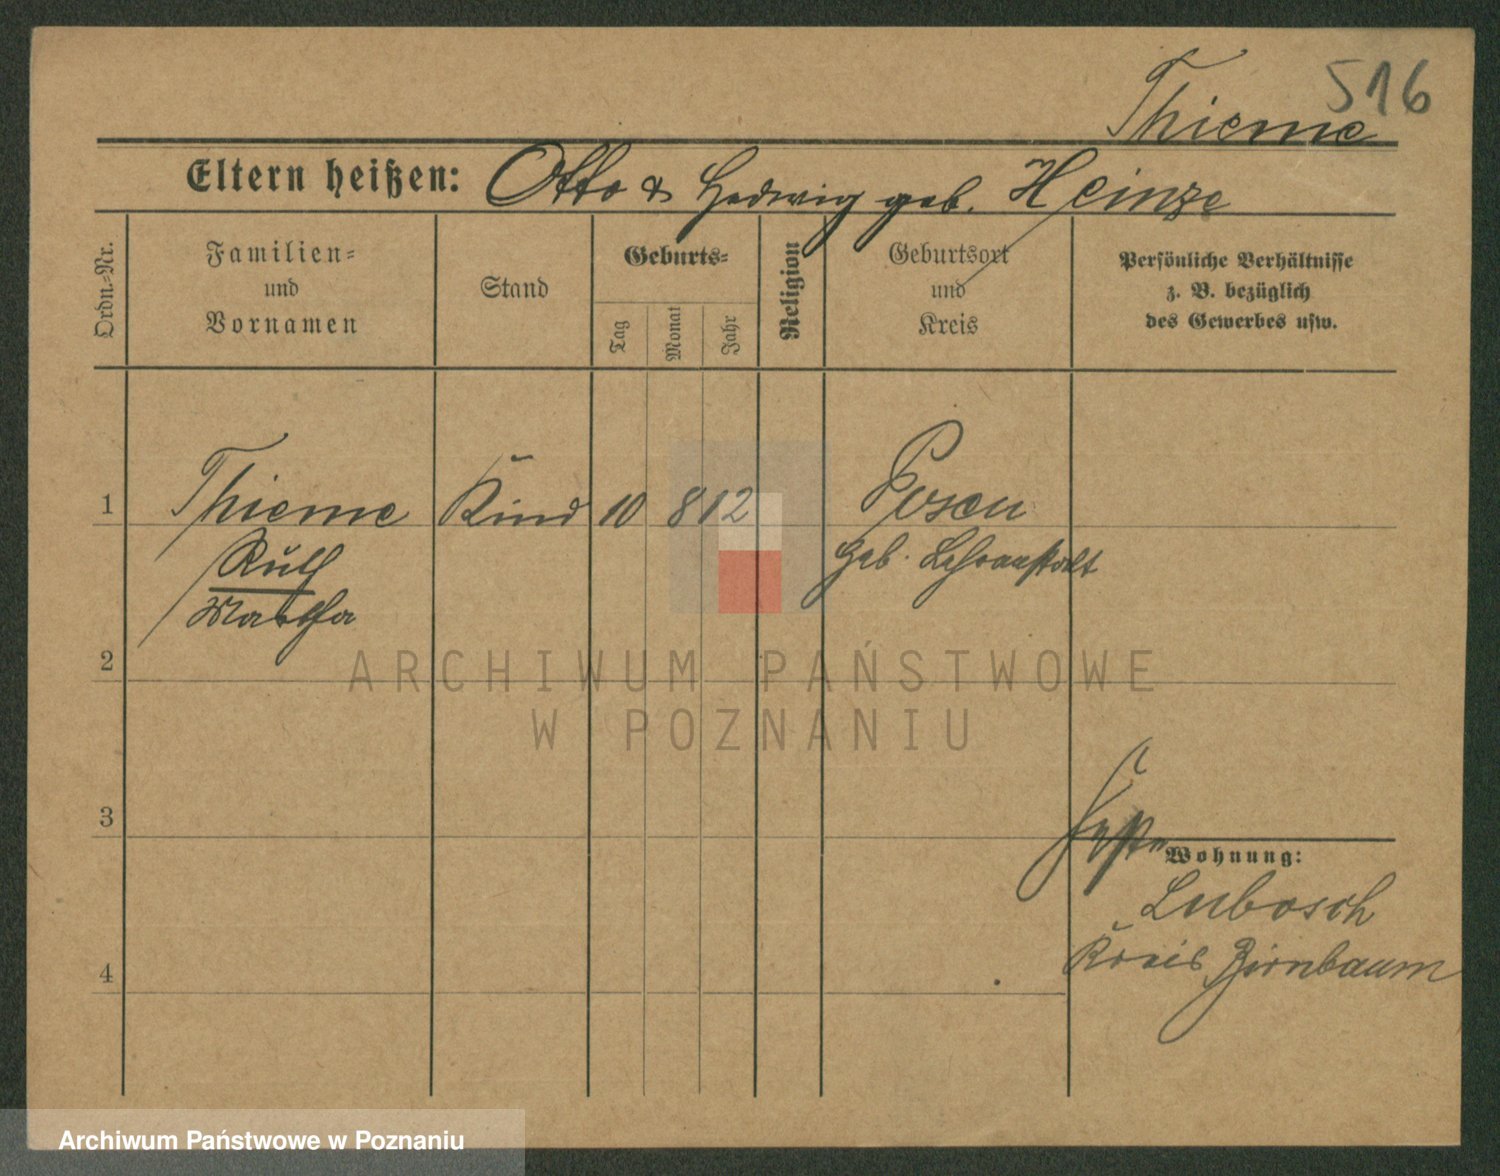 516
Thieme
Eltern heißen: Otto & Hedwig geb. Heinze
Ordn.-Nr.
Familien-
und
Vornamen
Stand
Geburts-
Tag
Monat
Jahr
Religion
Geburtsort
und
Kreis
Persönliche Verhältnisse
z. B. bezüglich
des Gewerbes usw.
1
Thieme Kind 10 8 12 Posen
Ruth
Geb. Lehranstalt
Martha
2
ARCHIWUM PAŃSTWOWE
W POZNANIU
3
Wohnung:
Lubosch
Kreis Birnbaum
4
Archiwum Państwowe w Poznaniu